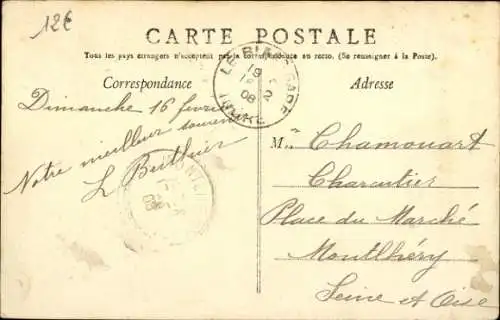 12€
CARTE POSTALE
Tous les pays étrangers n'acceptent pas la correspondance au recto. (Se renseigner à la Poste).
Correspondance
Adresse
LE BLANC GARE
19
16 2
08
INDRE
Dimanche 16 février
Notre meilleur souvenir
L Berthier
08
M Chamouart
Charcutier
Place du Marché
Montlhéry
Seine et Oise